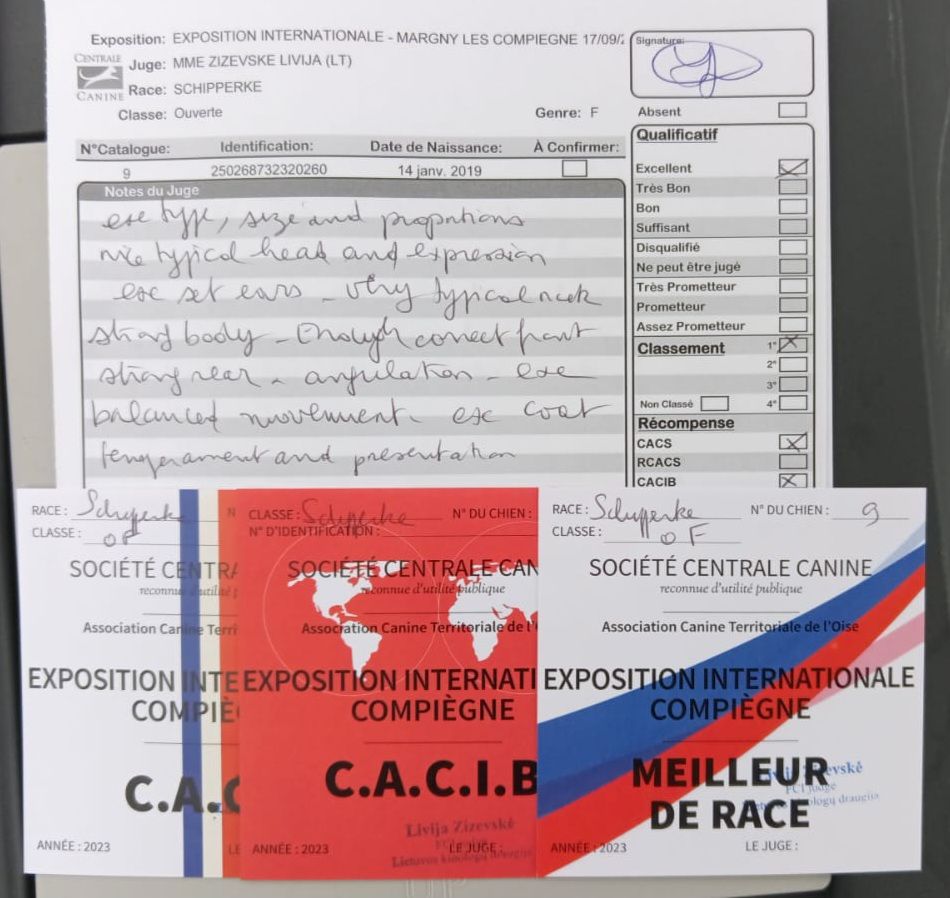 Exposition: EXPOSITION INTERNATIONALE - MARGNY LES COMPIEGNE 17/09/2
CENTRALE
CANINE
Juge: MME ZIZEVSKE LIVIJA (LT)
Race: SCHIPPERKE
Classe: Ouverte Genre: F
Signature:
N°Catalogue: Identification: Date de Naissance: À Confirmer:
9 250268732320260 14 janv. 2019
Notes du Juge
exc type, size and proportions
nice typical head and expression
exc set ears - very typical neck
strong body - Enough correct front
strong rear - angulation - exc
balanced movement - exc coat
temperament and presentation
Absent
Qualificatif
Excellent
Très Bon
Bon
Suffisant
Disqualifié
Ne peut être jugé
Très Prometteur
Prometteur
Assez Prometteur
Classement 1°
2°
3°
Non Classé 4°
Récompense
CACS
RCACS
CACIB
RACE : Schipperke N
CLASSE : OF
SOCIÉTÉ CENTRA
reconnue d'utilité p
Association Canine Terri
EXPOSITION INTE
COMPIÈG
C.A.C
ANNÉE : 2023 LE
CLASSE : Schipperke N° DU CHIEN :
N° D'IDENTIFICATION :
SOCIÉTÉ CENTRALE CAN
reconnue d'utilité publique
Association Canine Territoriale de l'
EXPOSITION INTERNATI
COMPIÈGNE
C.A.C.I.B
Livija Zizevskė
FCI judge
Lietuvos kinologų draugija
ANNÉE : 2023 LE JUGE :
RACE : Schipperke N° DU CHIEN : 9
CLASSE : OF
SOCIÉTÉ CENTRALE CANINE
reconnue d'utilité publique
Association Canine Territoriale de l'Oise
EXPOSITION INTERNATIONALE
COMPIÈGNE
MEILLEUR
DE RACE
Livija Zizevskė
FCI judge
Lietuvos kinologų draugija
ANNÉE : 2023 LE JUGE :